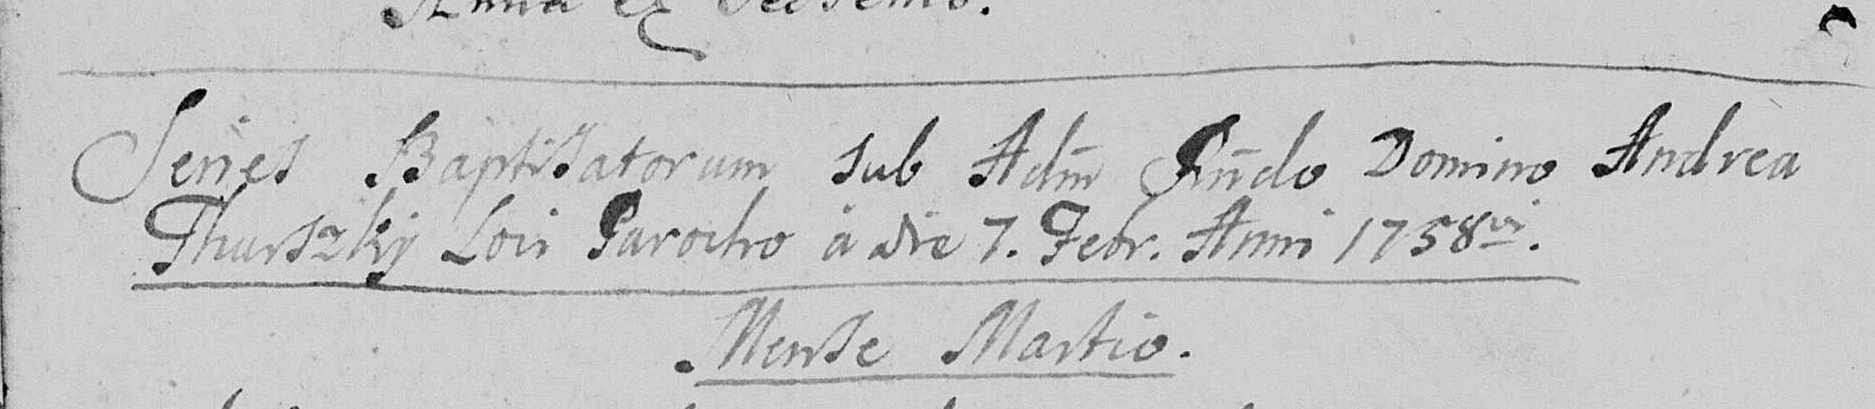 Anna ex
Series Baptisatorum sub Adm̄ Rn̄do Domino Andrea
Thurszky Loci Parocho à die 7. Febr. Anni 1758vi.
Mense Martio.